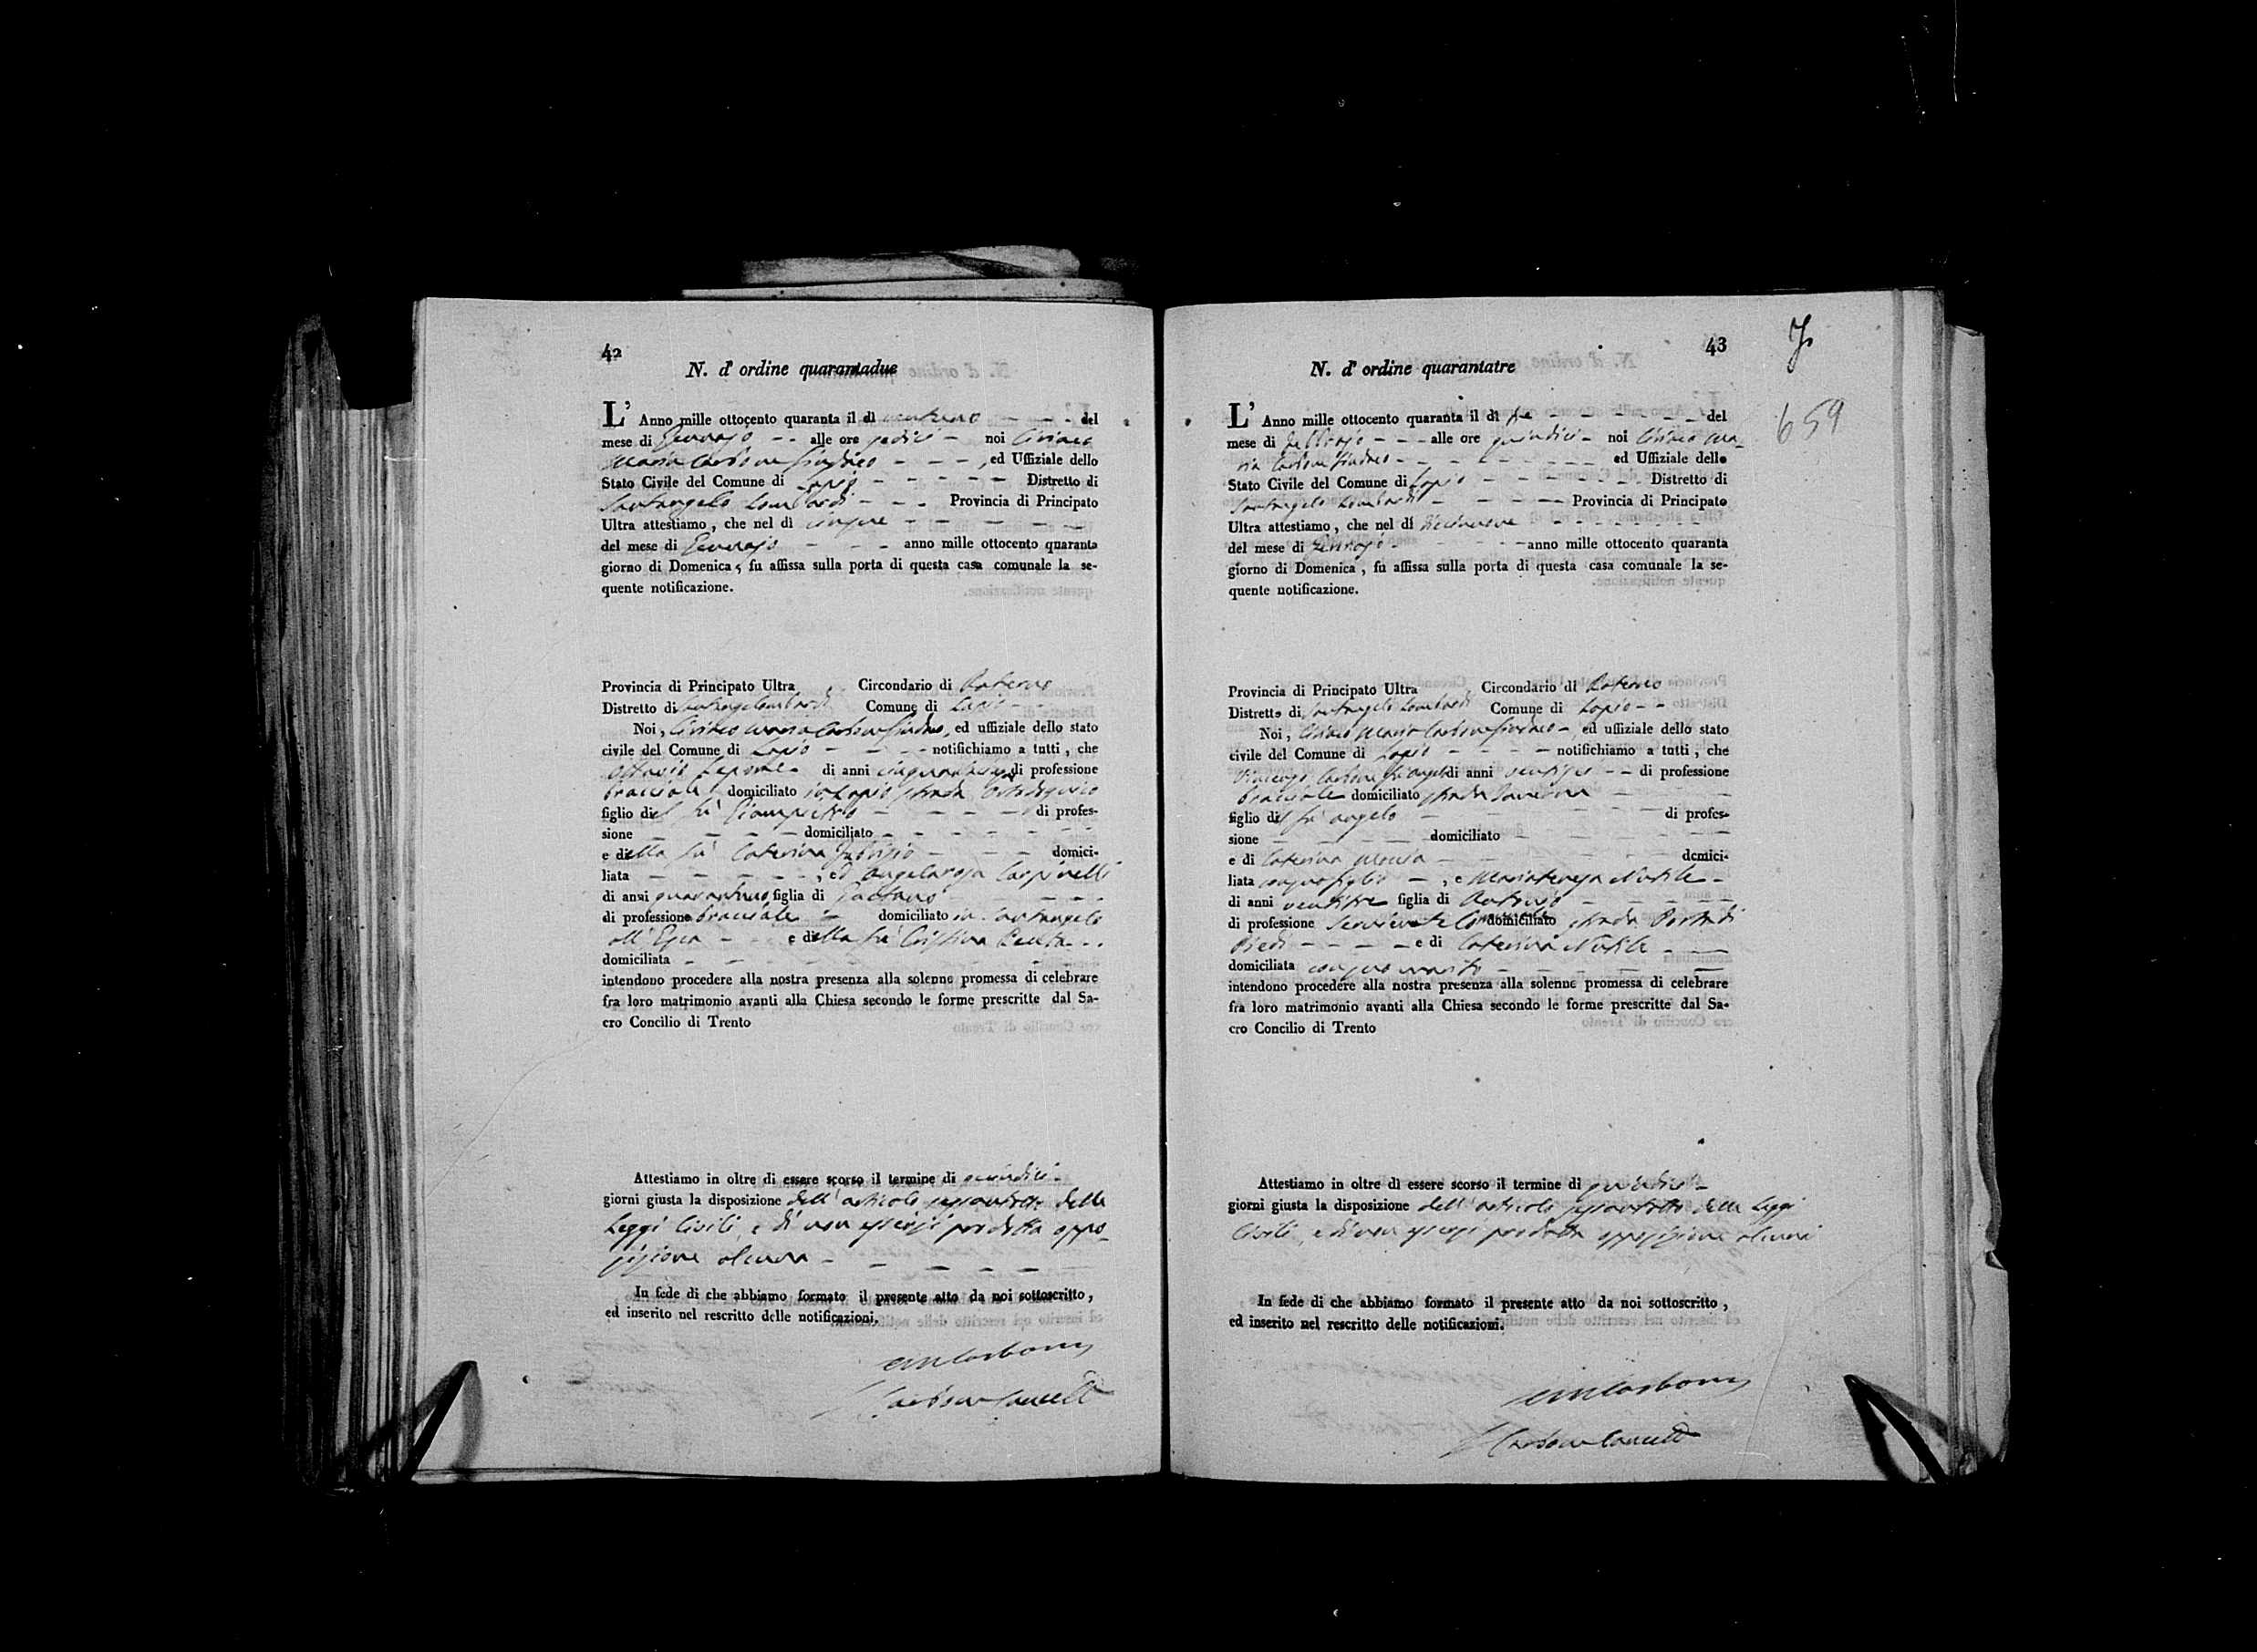 42
N. d' ordine quarantadue
L' Anno mille ottocento quaranta il dì ventuno - - - del
mese di Gennajo - - alle ore sedici - noi Ciriaco
Maria Carbone Sindaco - - - , ed Uffiziale dello
Stato Civile del Comune di Lapio - - - - - Distretto di
Santangelo Lombardi - - - Provincia di Principato
Ultra attestiamo, che nel dì cinque - - - - -
del mese di Gennajo - - - anno mille ottocento quaranta
giorno di Domenica, fu affissa sulla porta di questa casa comunale la se-
quente notificazione.
Provincia di Principato Ultra Circondario di Paterno
Distretto di Santangelo Lombardi Comune di Lapio - -
Noi, Ciriaco Maria Carbone Sindaco, ed uffiziale dello stato
civile del Comune di Lapio - - - - notifichiamo a tutti, che
Ottavio Lepore - di anni di professione
bracciale domiciliato in Lapio strada
figlio del fù Giampietro - - - - di profes-
sione - - - - domiciliato - - - - - -
e della fù Caterina - - - - domici-
liata - - - - - , ed Angelarosa Carpinelli
di anni quarantuno figlia di Gaetano - - -
di professione bracciale - domiciliato in Santangelo
all' Esca - - e della fù Cristina Penta - -
domiciliata - - - - - - - -
intendono procedere alla nostra presenza alla solenne promessa di celebrare
fra loro matrimonio avanti alla Chiesa secondo le forme prescritte dal Sa-
cro Concilio di Trento
Attestiamo in oltre di essere scorso il termine di quindici -
giorni giusta la disposizione dell' articolo sessantotto delle
Leggi Civili, e di non essersi prodotta oppo-
sizione alcuna - - - - - -
In fede di che abbiamo formato il presente atto da noi sottoscritto,
ed inserito nel rescritto delle notificazioni.
CMCarbone
Carbone
43
659
N. d' ordine quarantatre
L' Anno mille ottocento quaranta il dì tre - - - - - - - del
mese di Febbrajo - - - alle ore quindici - noi Ciriaco Ma-
ria Carbone Sindaco - - - - - - - ed Uffiziale dello
Stato Civile del Comune di Lapio - - - - - - Distretto di
Santangelo Lombardi - - - - - Provincia di Principato
Ultra attestiamo, che nel dì diecinove - - - - - -
del mese di Gennajo - - - - - anno mille ottocento quaranta
giorno di Domenica, fu affissa sulla porta di questa casa comunale la se-
quente notificazione.
Provincia di Principato Ultra Circondario di Paterno
Distretto di Santangelo Lombardi Comune di Lapio - -
Noi, Ciriaco Maria Carbone Sindaco - , ed uffiziale dello stato
civile del Comune di Lapio - - - - notifichiamo a tutti, che
Vincenzo Carbone fù Angelo di anni - - di professione
bracciale domiciliato strada - - -
figlio del fù Angelo - - - - - di profes-
sione - - - - - domiciliato - - - -
e di Caterina - - - - - - domici-
liata con suo figlio - , e Mariateresa Nutile -
di anni ventitre figlia di Antonio - - - - -
di professione domiciliato strada
Piedi - - - - e di Caterina Nutile - - -
domiciliata con suo marito - - - - -
intendono procedere alla nostra presenza alla solenne promessa di celebrare
fra loro matrimonio avanti alla Chiesa secondo le forme prescritte dal Sa-
cro Concilio di Trento
Attestiamo in oltre di essere scorso il termine di quindici -
giorni giusta la disposizione dell' articolo sessantotto delle Leggi
Civili, e di non essersi prodotta opposizione alcuna
In fede di che abbiamo formato il presente atto da noi sottoscritto,
ed inserito nel rescritto delle notificazioni.
CMCarbone
Carbone